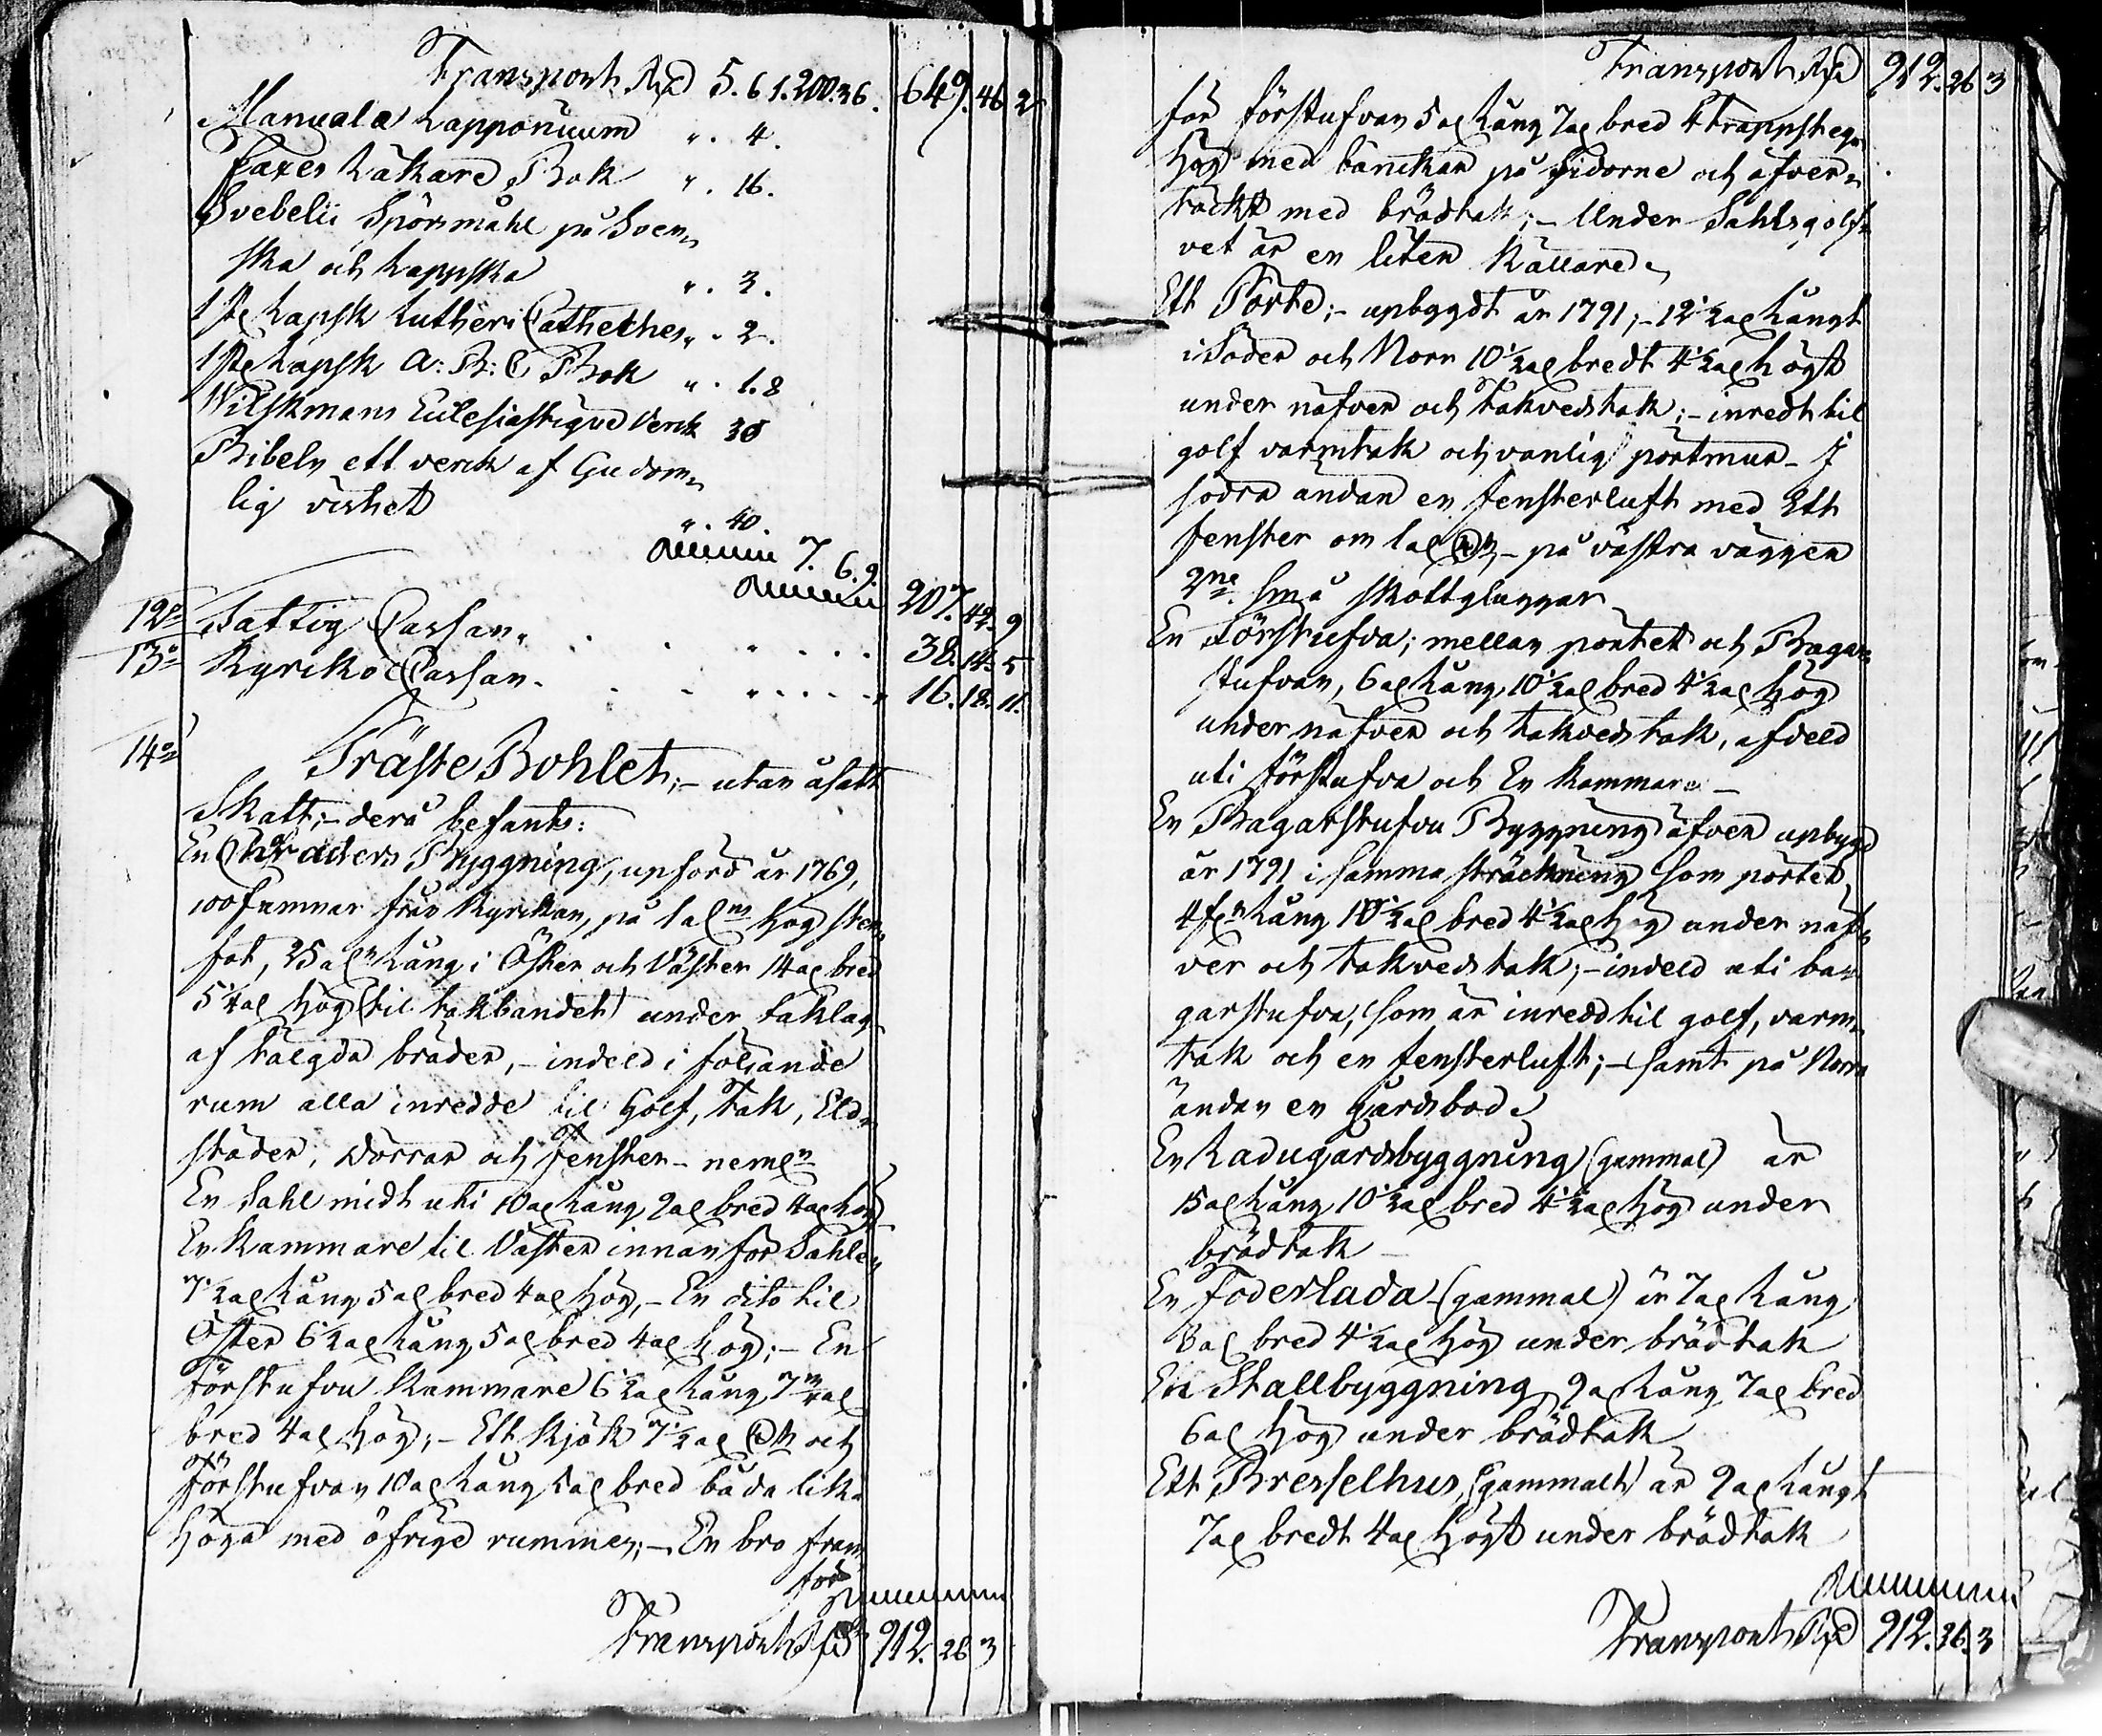 Transport Rxd 5. 6 1. 200. 36. 649. 46 2
Manuale Lapponicum " . 4.
Faxes Läkare Bok " . 16.
Svebelii Spörsmåhl på Sven„
ska och Lappska " . 3.
1 st Lapsk Lutheri Cathechis„ . 2.
1 st Lapsk A: B: C Bok " . 1. 8
Wilskmans Eclesiastique Verck 30
Bibeln ett verck af Gudom„
lig vishet " . 40.
7. 6. 9. 207. 42. 9
12º Fattig Cassan „ . . . . 38. 14. 5
13º Kyriko Cassan . . . . 16. 18. 11.
14º Präste Bohlet; – utan åsatt
Skatt; – derå befants:
En Characters Byggning, upförd år 1769,
100 famnar från Kyrkan, på 1 alns hög sten„
fot, 25 aln Lång i Öster och Väster 14 al bred
5¼ al hög (til takbandet) under taklag
af tälgda bräder, – indeld i följande
rum alla inredde til Golf, tak, Eld„
städer, Dörrar och Fenster – neml:n
En Sahl midt uti 10 al Lång 9 al bred 4 al hög
En Kammare til Väster innanför Sahlen
7½ al Lång 5 al bred 4 al hög, – En dito til
Öster 6½ al Lång 5 al bred 4 al hög; – En
Förstufvu Kammare 6½ al Lång 7 ¼ al
bred 4 al hög; – Ett Kjök 7½ al och
Förstufvan 10 al Lång 5 al bred båda lika
höga med öfrige rummen; – En bro fram
för
Transport Rxd 912. 26 3
Transport Rxd 912. 26 3
för förstufvan 5 al Lång 7 al bred 4 Trappsteg
hög med bänckar på sidorne och öfver„
täckt med brädtak; – Under Sahlsgolf„
vet är en liten Källare
Ett Pörte; – upbygdt år 1791; – 12½ al Långt
i Söder och Norr 10½ al bredt 4½ al högt
under näfver och takvedstak; – inredt til
golf varmtak och vanlig pörtmur – I
södra ändan en fensterluft med Ett
fenster om 1 al – på västra väggen
2ne små skottgluggar
En Förstufva; mellan pörtet och Bagar„
stufvan, 6 al Lång 10½ al bred 4½ al hög
under näfver och takvedstak, afdeld
uti förstufva och En Kammare –
En Bagarstufvu Byggning äfven upbygd
år 1791 i samma sträckning som pörtet,
4 f:n Lång 10½ al bred 4½ al hög under näf„
ver och takvedstak; – indeld uti ba„
garstufva, som är inredd til golf, varm„
tak och en fensterluft; – samt på Norra
ändan en gårdsbod
En Ladugårdsbyggning (gammal) är
15 al Lång 10½ al bred 4½ al hög under
brädtak –
En Foderlada – (gammal) är 7 al Lång
8 al bred 4½ al hög under brädtak
En Stallbyggning 9 al Lång 7 al bred
6 al hög under brädtak
Ett Bresselhus, (gammalt) är 9 al Långt
7 al bredt 4 al högt under brädtak
Transport Rxd 912. 26. 3